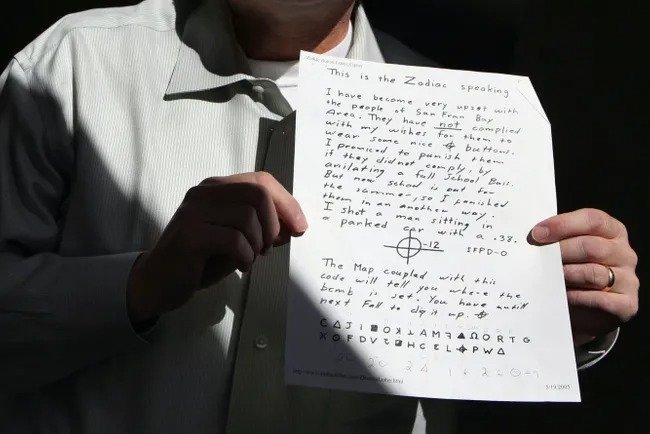 This is the Zodiac speaking
I have become very upset with
the people of San Fran Bay
Area. They have not complied
with my wishes for them to
wear some nice ⌖ buttons.
I promiced to punish them
if they did not comply, by
anilating a full School Buss.
But now school is out for
the summer, so I punished
them in an another way.
I shot a man sitting in
a parked car with a .38.
⌖-12 SFPD-0
The Map coupled with this
code will tell you where the
bomb is set. You have untill
next Fall to dig it up. ⌖
C Δ J I ■ O ꓘ ⅄ A M ꟻ ▲ Ω O R T G
X ⊙ F D V Ƨ ◪ H C E L ⌖ P W Δ